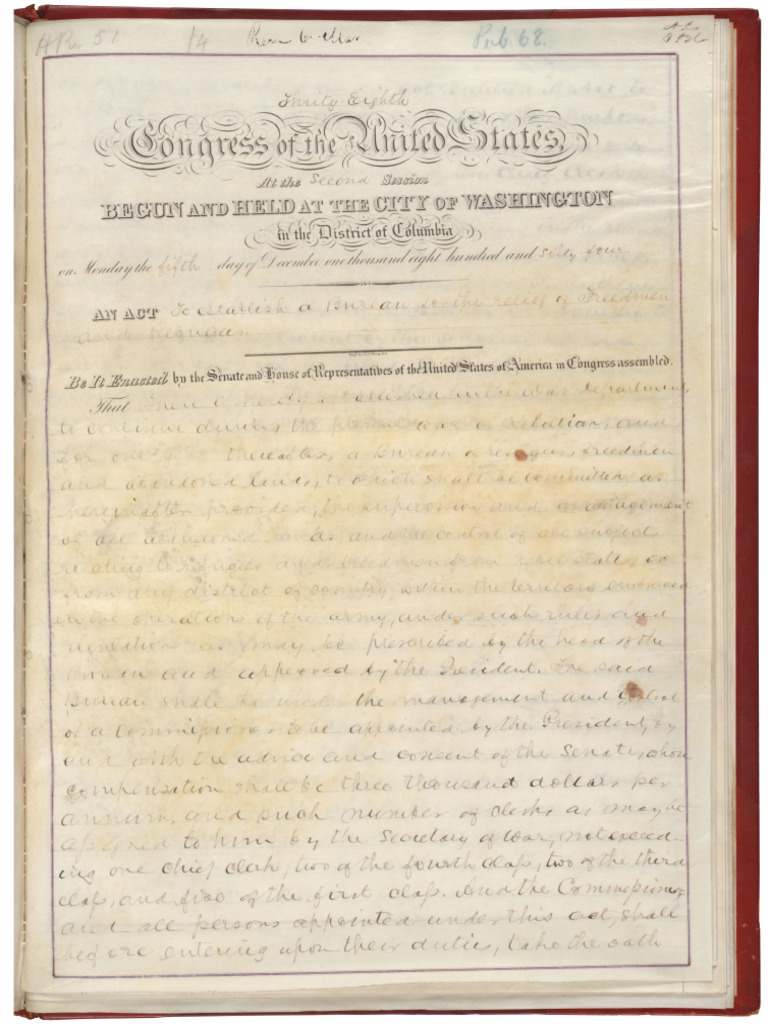 HR. 51 14 Pub. 68.
Thirty-Eighth
Congress of the United States,
At the Second Session
BEGUN AND HELD AT THE CITY OF WASHINGTON
in the District of Columbia
on Monday the fifth day of December one thousand eight hundred and sixty four
AN ACT To establish a Bureau for the relief of Freedmen
and Refugees
Be It Enacted by the Senate and House of Representatives of the United States of America in Congress assembled.
That there is hereby established in the War Department,
to continue during the present war of rebellion, and
for one year thereafter, a bureau of refugees, freedmen
and abandoned lands, to which shall be committed, as
hereinafter provided, the supervision and management
of all abandoned lands, and the control of all subjects
relating to refugees and freedmen from rebel states, or
from any district of country within the territory embraced
in the operations of the army, under such rules and
regulations as may be prescribed by the head of the
bureau and approved by the President. The said
Bureau shall be under the management and control
of a Commissioner to be appointed by the President, by
and with the advice and consent of the Senate, whose
compensation shall be three thousand dollars per
annum, and such number of clerks as may be
assigned to him by the Secretary of War, not exceed-
ing one chief clerk, two of the fourth class, two of the third
class, and five of the first class. And the Commissioner
and all persons appointed under this act, shall
before entering upon their duties, take the oath